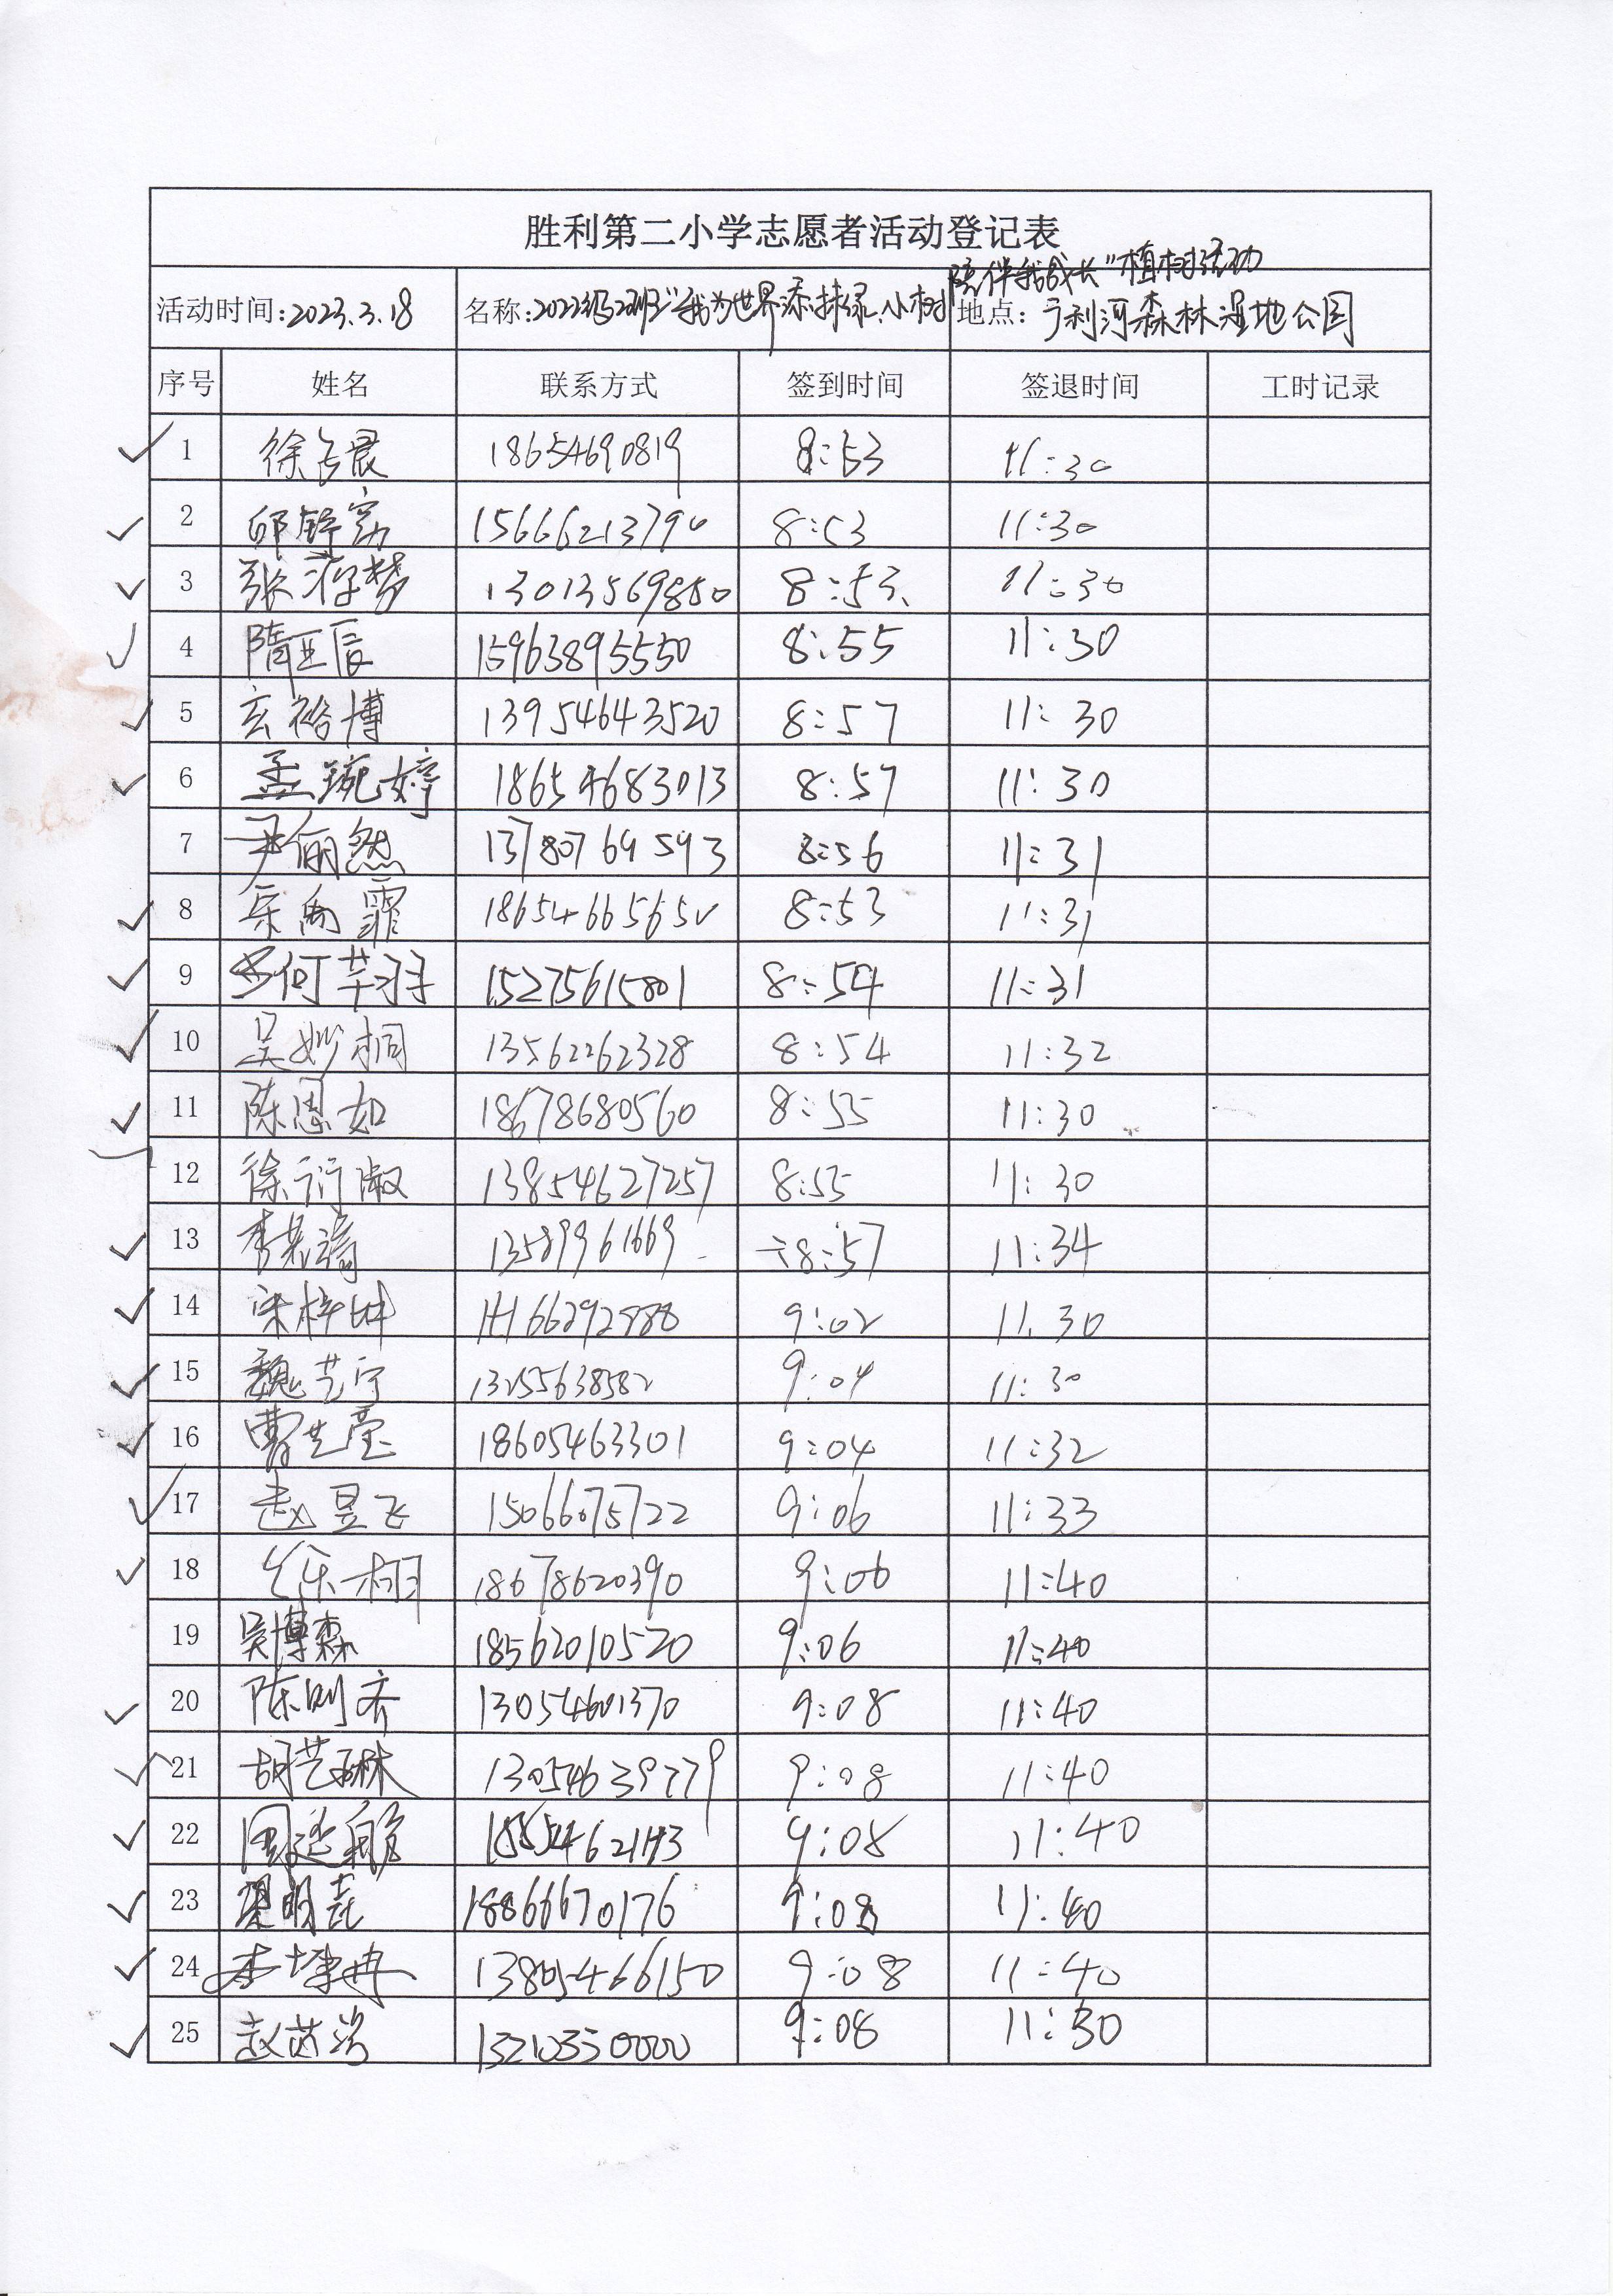 胜利第二小学志愿者活动登记表
陪伴我成长"植树活动
活动时间:2023.3.18 名称:2022级2班"我为世界添抹绿,小树 地点:广利河森林湿地公园
序号 姓名 联系方式 签到时间 签退时间 工时记录
1 18654690819 8:53 11:30
2 15666213790 8:53 11:30
3 张 梦 13013569850 8:53、 11:30
4 隋正辰 15963895550 8:55 11:30
5 玄裕博 13954643520 8:57 11:30
6 孟琬婷 18654683013 8:57 11:30
7 尹俪然 13780769593 8:56 11:31
8 雨霏 8:53 11:31
9 何芊羽 15275615801 8:54 11:31
10 吴妙桐 13562262328 8:54 11:32
11 陈思如 18678680560 8:55 11:30
12 徐衍淑 13854627257 8:55 11:30
13 李 13589961669 8:57 11:34
14 宋梓坤 9:02 11.30
15 魏艺宁 13255638582 9:04 11:30
16 曹艺莹 18605463301 9:04 11:32
17 赵昱飞 15066075722 9:06 11:33
18 乐栩 18678620390 9:06 11:40
19 吴博森 18562010520 9:06 11:40
20 陈则齐 13054601370 9:08 11:40
21 胡艺琳 13054639779 9:08 11:40
22 周 9:08 11:40
23 梁明 18866670176 9:08 11:40
24 李 冉 13805466150 9:08 11:40
25 赵芮 13210350000 9:08 11:30